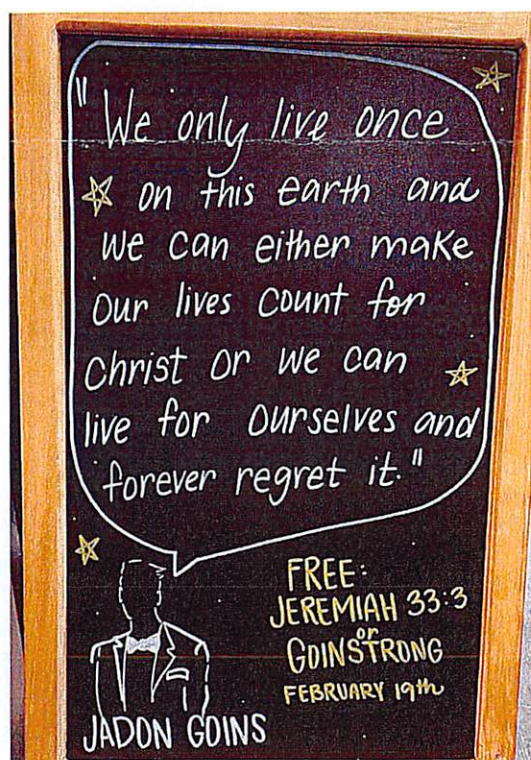 "We only live once
on this earth and
we can either make
our lives count for
Christ or we can
live for ourselves and
forever regret it."
FREE:
JEREMIAH 33:3
or
GOINSTRONG
FEBRUARY 19th
JADON GOINS